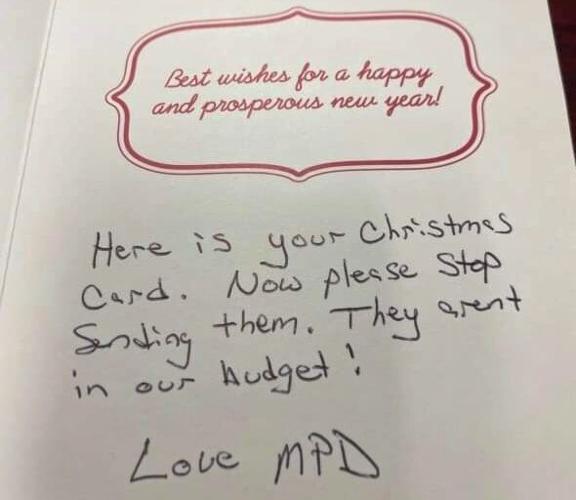 Best wishes for a happy
and prosperous new year!
Here is your Christmas
Card. Now please Stop
Sending them. They arent
in our budget!
Love MPD